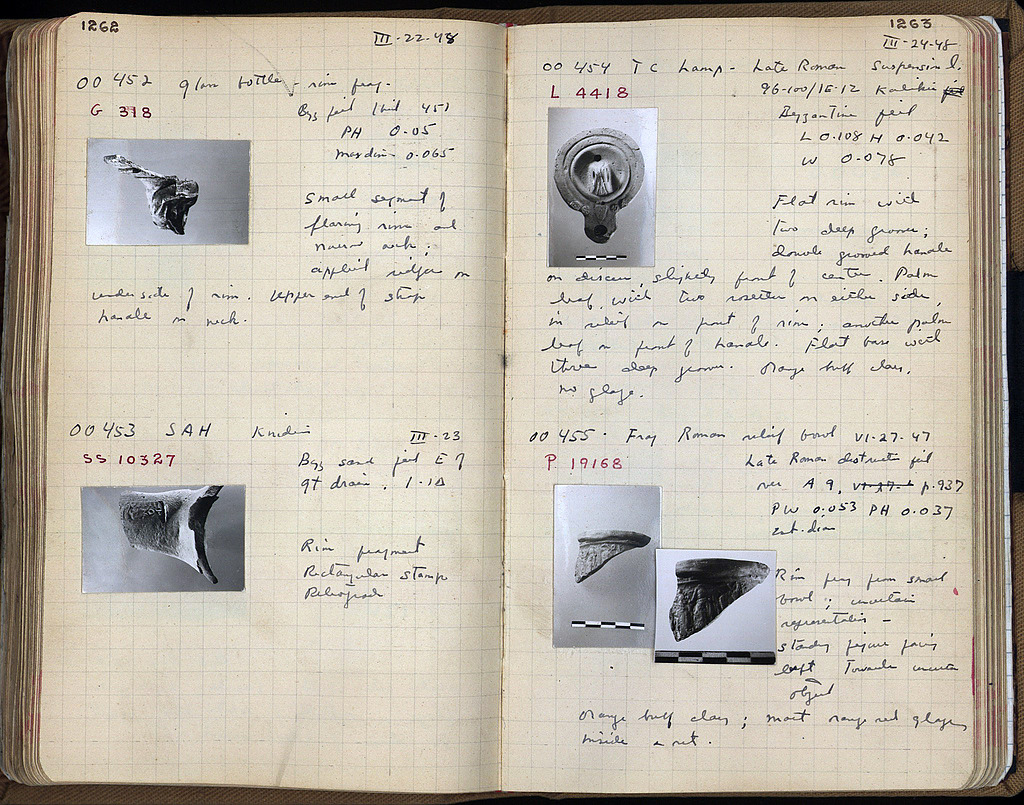 1262
III-22-48
OO 452 Glass bottle - rim frag.
G 318
Byz fill
PH 0.05
Max dim 0.065
Small segment of
flaring rim and
narrow neck;
applied ridges on
underside of rim. Upper end of strap
handle on neck.
OO 453 SAH Knidian
III-23
SS 10327
Byz sand fill E of
gt drain. 1-10
Rim fragment
Rectangular stamp
Retrograde
1263
III-24-48
OO 454 TC Lamp - Late Roman
L 4418
96-100/ΙΕ-12
Byzantine fill
L 0.108 H 0.042
W 0.078
Flat rim with
two deep grooves;
double grooved handle
on discus, slightly front of center. Palm
leaf with two rosettes on either side,
in relief on front of rim; another palm
leaf in front of handle. Flat base with
three deep grooves. Orange buff clay,
no glaze.
OO 455. Frag Roman relief bowl VI-27-47
P 19168
Late Roman destruction fill
over A 9, p. 937
PW 0.053 PH 0.037
est. dim
Rim frag from small
bowl; uncertain
representation -
standing figure facing
left towards uncertain
object
Orange buff clay; matt orange red glaze,
inside & out.